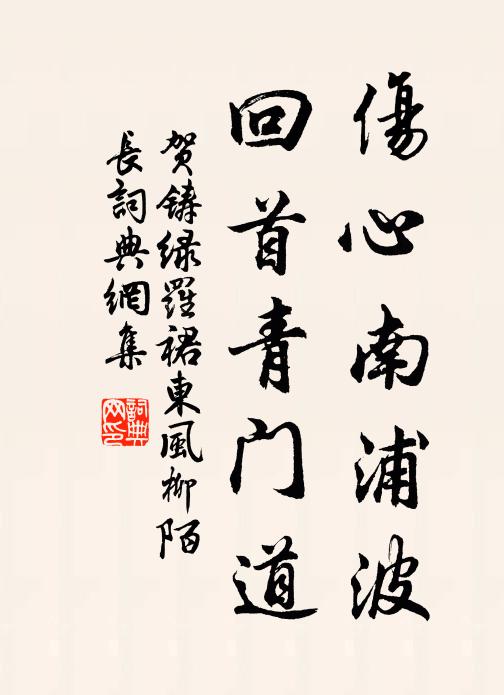 傷心南浦波
回首青门道
贺鑄绿羅裙東風柳陌
長詞典網集
詞典網印